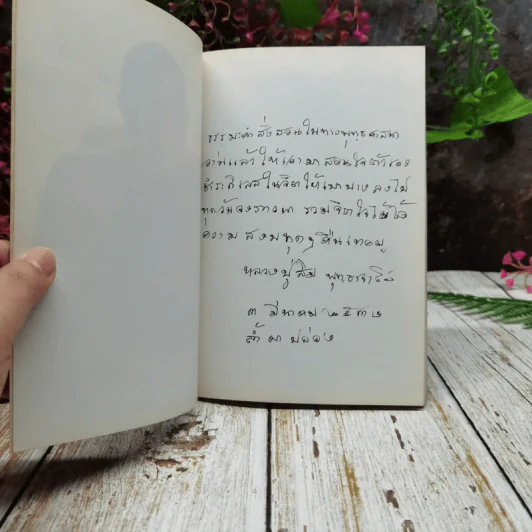 ธรรมะคำสั่งสอนในทางพุทธศาสนา
อ่านแล้วให้เอามาสอนใจตัวเอง
ชำระกิเลสในจิตให้เบาบางลงไป
ทุกวัน รวมจิตใจให้ได้
ความสงบทุกๆคืนเทอญ
หลวงปู่สิม พุทธาจาโร
๓ มีนาคม ๒๕๓๒
ถ้ำผาปล่อง